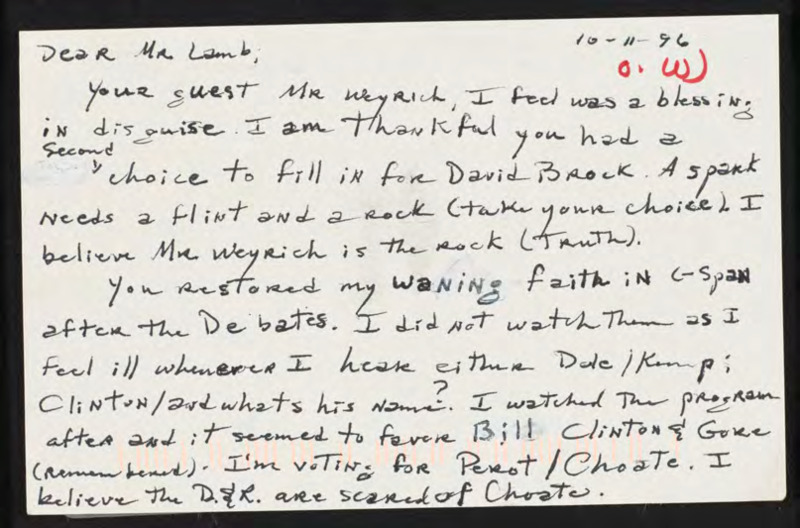 Dear Mr Lamb,
10-11-96
O. W)
Your guest Mr Weyrich, I feel was a blessing
in disguise. I am thankful you had a
second
choice to fill in for David Brock. A spark
needs a flint and a rock (take your choice). I
believe Mr Weyrich is the rock (Truth).
You restored my waning faith in C-Span
after the Debates. I did not watch them as I
feel ill whenever I hear either Dole/Kemp;
Clinton/and whats his name?. I watched the program
after and it seemed to favor Bill Clinton & Gore
(remembered). I'm voting for Perot/Choate. I
believe the D.&R. are scared of Choate.